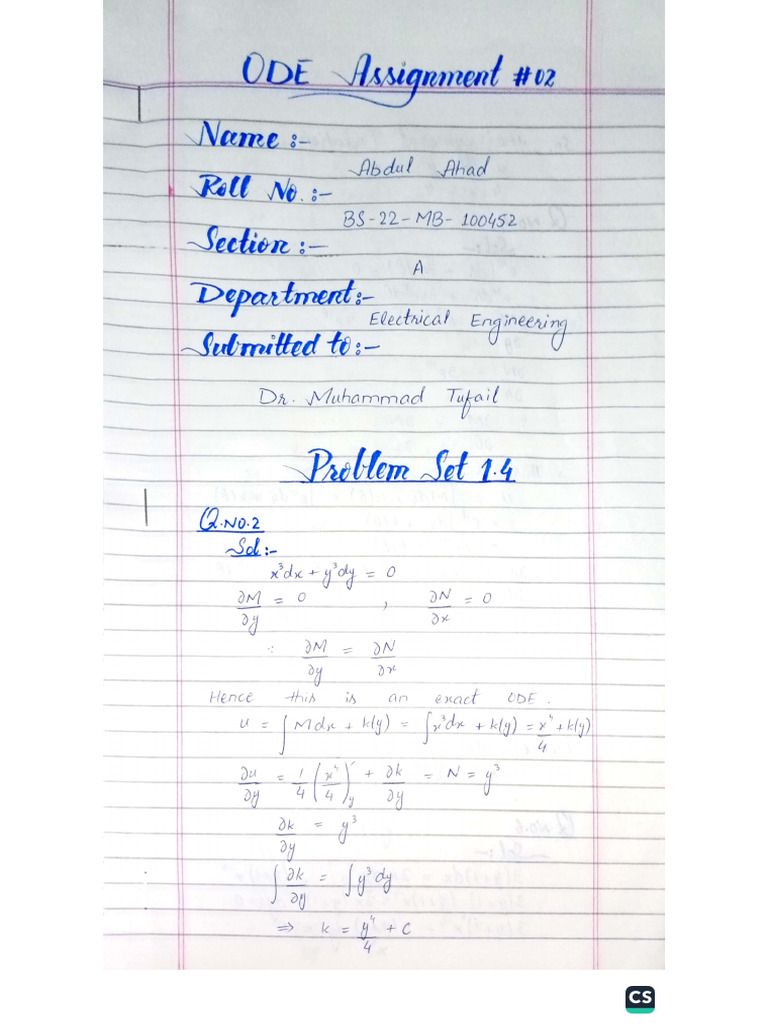 ODE Assignment #02
Name :-
Abdul Ahad
Roll No. :-
BS-22-MB-100452
Section :-
A
Department:-
Electrical Engineering
Submitted to:-
Dr. Muhammad Tufail
Problem Set 1.4
Q.NO.2
Sol:-
x³dx + y³dy = 0
∂M/∂y = 0 , ∂N/∂x = 0
∵ ∂M/∂y = ∂N/∂x
Hence this is an exact ODE.
u = ∫Mdx + k(y) = ∫x³dx + k(y) = x⁴/4 + k(y)
∂u/∂y = 1/4 (x⁴/4)'y + ∂k/∂y = N = y³
∂k/∂y = y³
∫∂k/∂y = ∫y³dy
⇒ k = y⁴/4 + C
CS